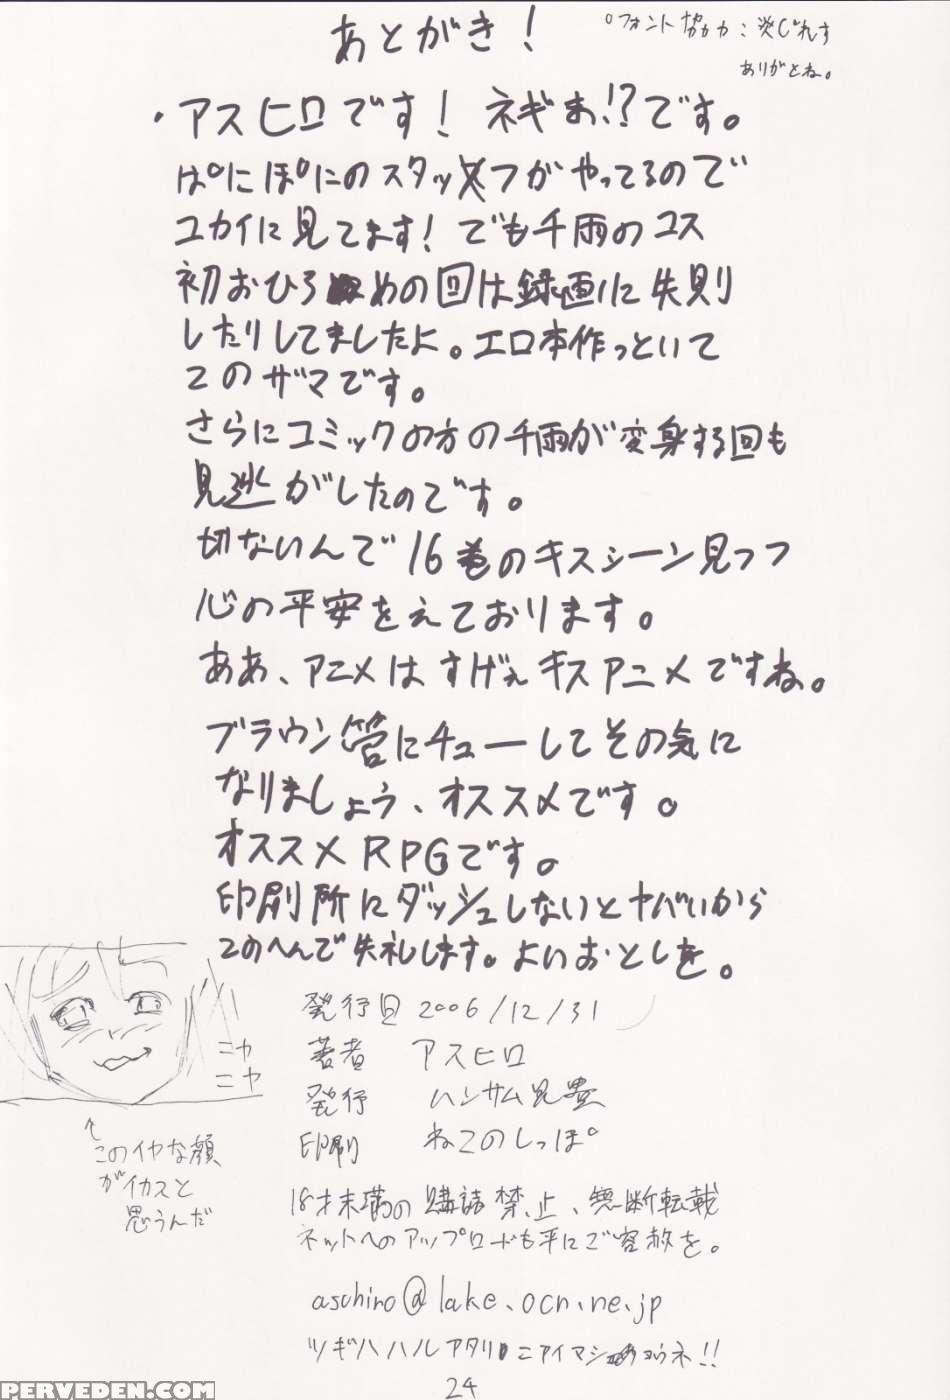 あとがき!
°フォント協力:炎じれす
ありがとね。
・アスヒロです! ネギま!?です。
ぱにぽにのスタッフがやってるので
ユカイに見てます! でも千雨のコス
初おひろめの回は録画に失則
したりしてましたよ。エロ本作っといて
このザマです。
さらにコミックの方の千雨が変身する回も
見逃がしたのです。
切ないんで16巻のキスシーン見つつ
心の平安をえております。
ああ、アニメはすげぇキスアニメですね。
ブラウン管にチューしてその気に
なりましょう、オススメです。
オススメRPGです。
印刷所にダッシュしないとヤバいから
このへんで失礼します。よいおとしを。
ニヤ
ニヤ
↑
このイヤな顔
がイカスと
思うんだ
発行日 2006/12/31
著者 アスヒロ
発行 ハンサム兄貴
印刷 ねこのしっぽ
18才未満の購読禁止、無断転載
ネットへのアップロードも平にご容赦を。
asuhiro@lake.ocn.ne.jp
ツギハハルアタリニアイマショウネ!!
24
PERVEDEN.COM